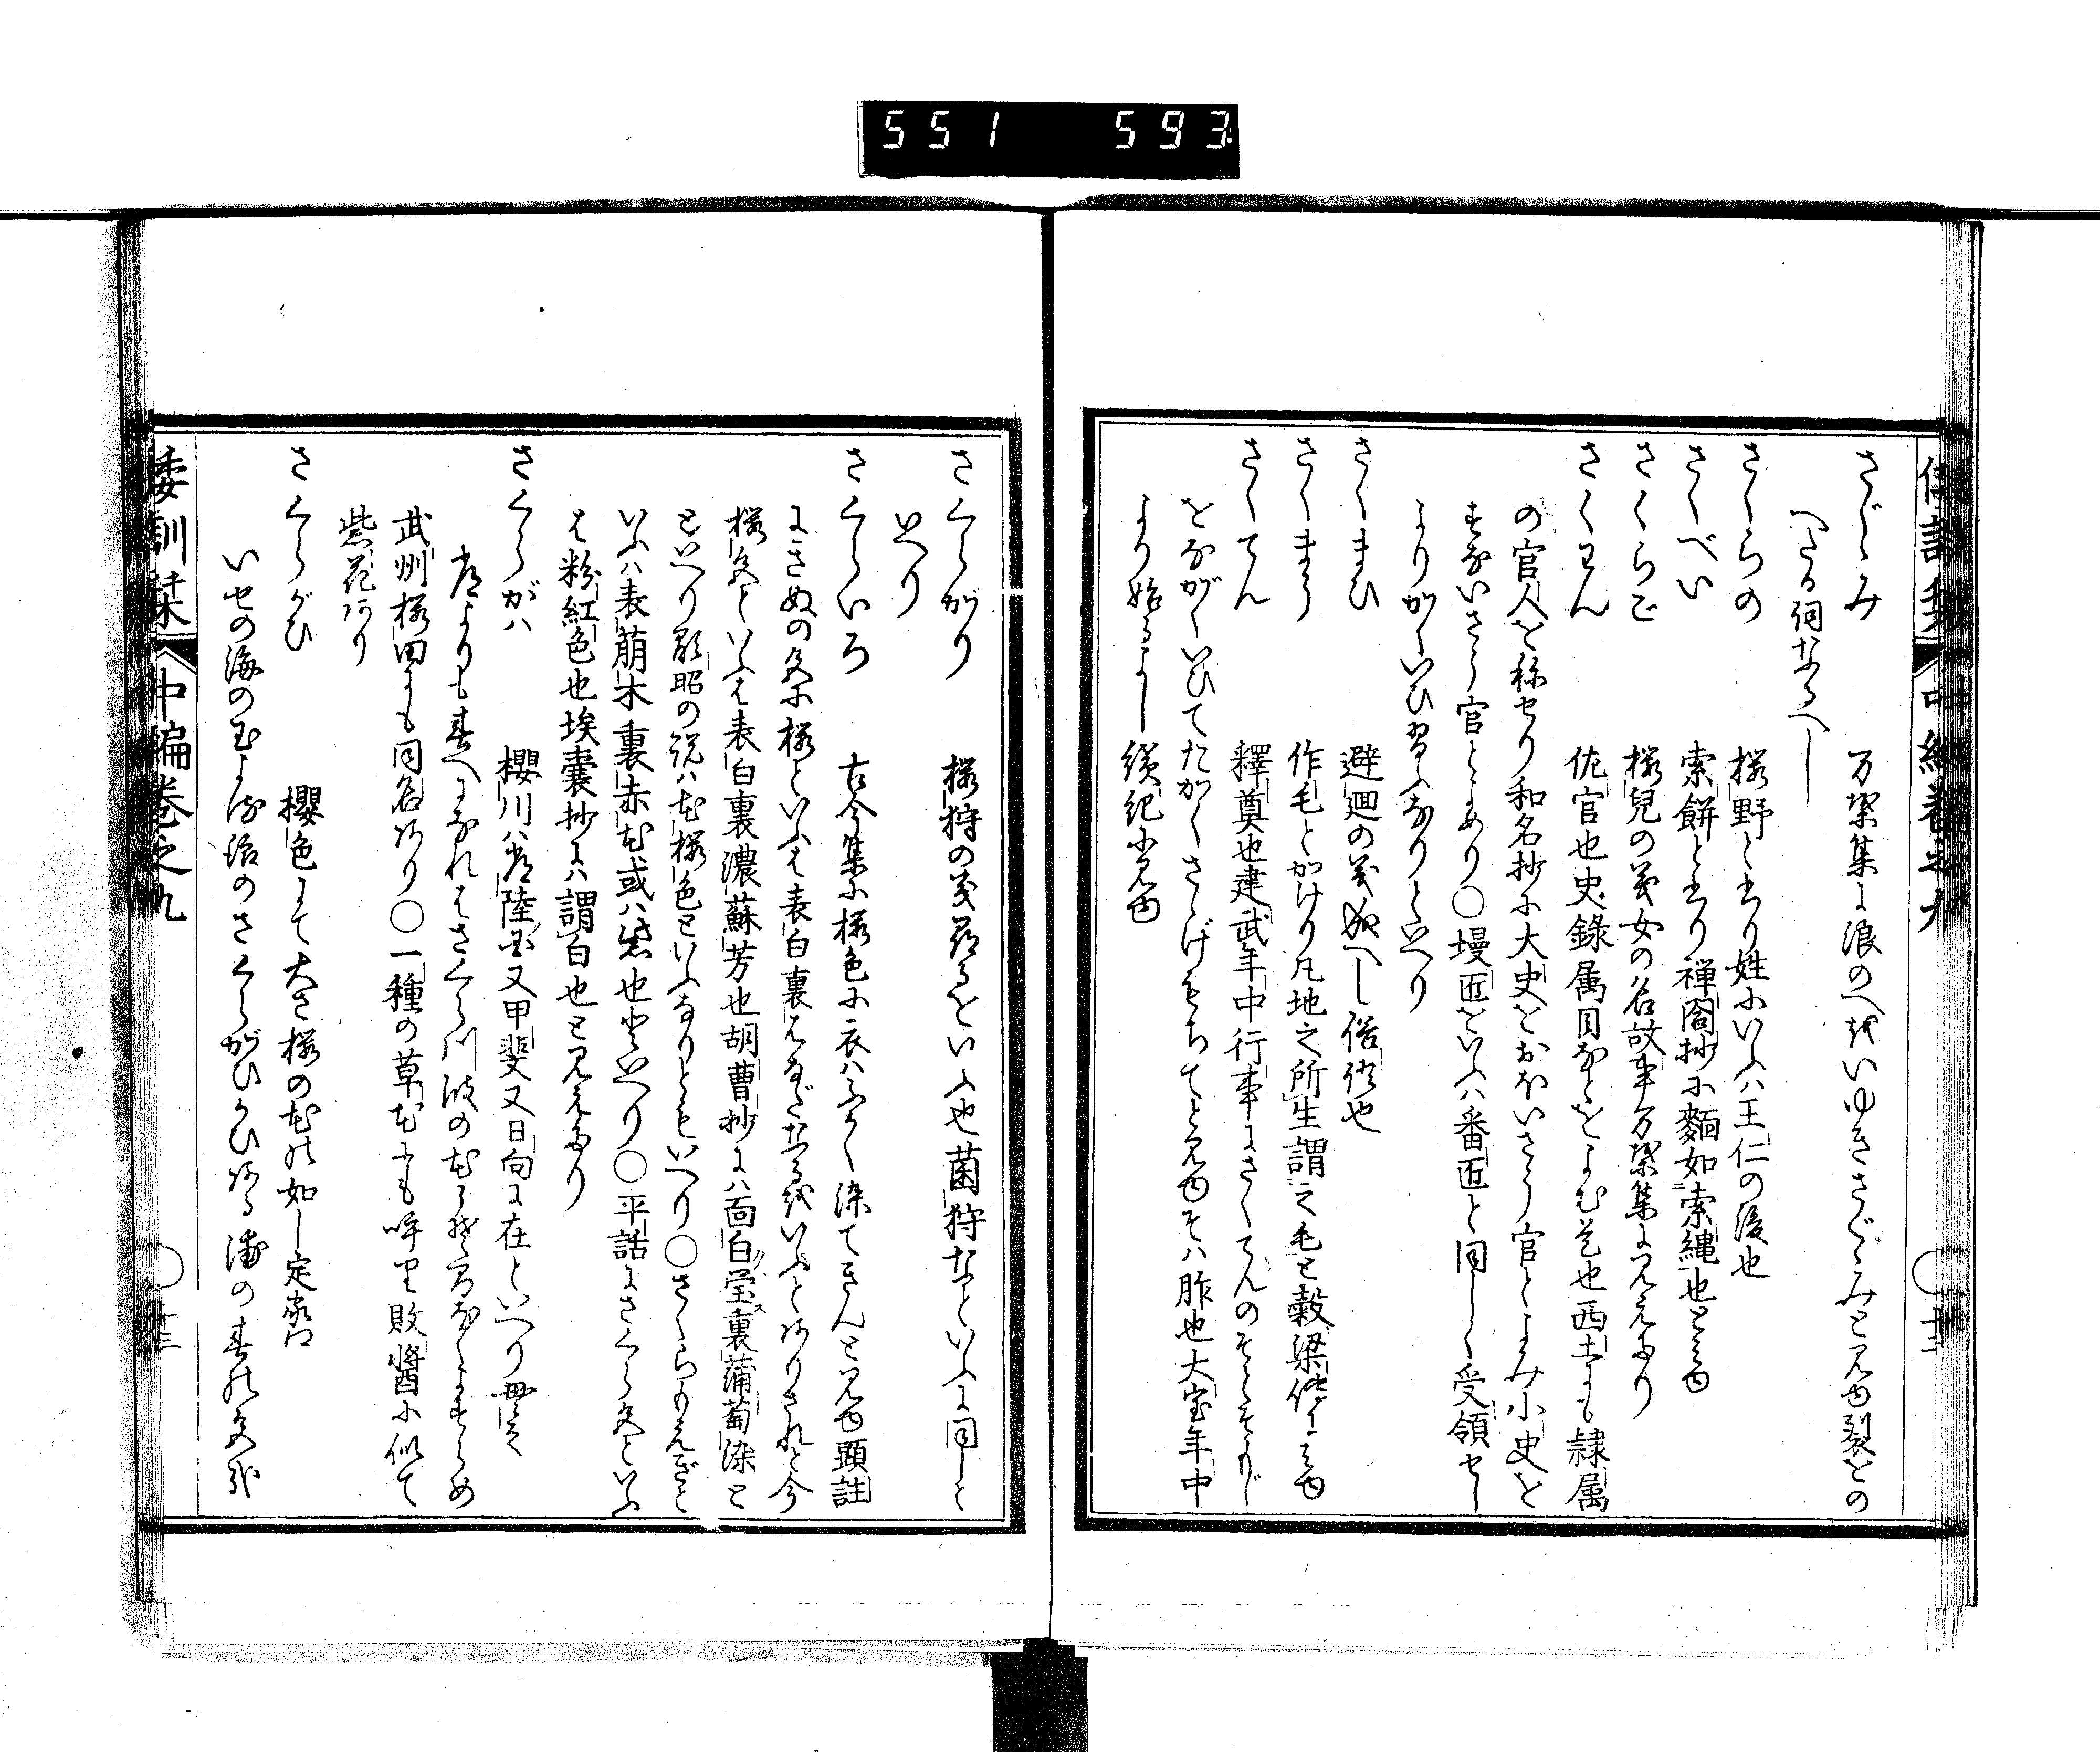 551 593
さゞみ 万葉集に浪のへをいゆきさぐゝみと見ゆ裂との
へたる詞なるへし
さくらの 桜野と書り姓にいふハ王仁の後也
さくべい 索餅と書り禅閤抄に麵如索縄也と見ゆ
さくらご 桜児の義女の名故事万葉集に見えたり
さくわん 佐官也史錄属目なとをよむ是也西土にも隷属
の官人を称せり和名抄に大史をおほいさう官とよみ小史を
すないさう官とよめり〇墁匠をいふハ番匠と同しく受領せし
よりかくいひ習へるなりといへり
さくまひ 避廻の義成へし俗語也
さくまう 作毛とかけり凡地之所生謂之毛と穀梁伝に見ゆ
さくてん 釋奠也建武年中行事にさくてんの
をながくいひてたかくさゝげもちてと見ゆそハ胙也大宝年中
より始るよし続紀に見ゆ
さくらがり 桜狩の義尋るをいふ也菌狩なといふに同しと
いへり
さくらいろ 古今集に桜色に衣ハふかく染てきんと見ゆ顕註
にきぬの色に桜といふは表白裏はなだなるをいふとありされと今
桜色といふは表白裏濃蘇芳也胡曹抄にハ面白瑩裏蒲萄染と
もいへり顕昭の説ハ花桜色といふなりともいへり〇さくらもえぎと
いふハ表萠木裏赤花或ハ紫也といへり〇平話にさくら色といふ
は粉紅色也埃嚢抄にハ謂白也と見えたり
さくらがハ 櫻川ハ常陸国又甲斐又日向に在といへり貫之
常よりも春へになれはさくら川波の花こそまなくよすらめ
武州桜田にも同名あり〇一種の草花にも呼り敗醬に似て
紫花あり
さくらがひ 櫻色にて大さ桜の花の如し定家卿
いせの海の玉よる浪のさくらがひかひある浦の春の色哉
倭訓栞 中編巻之九 〇 廿三